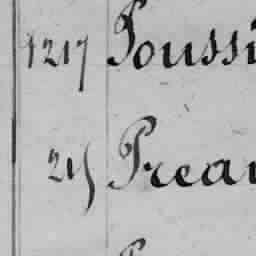 1217 Poussi
215 Preau